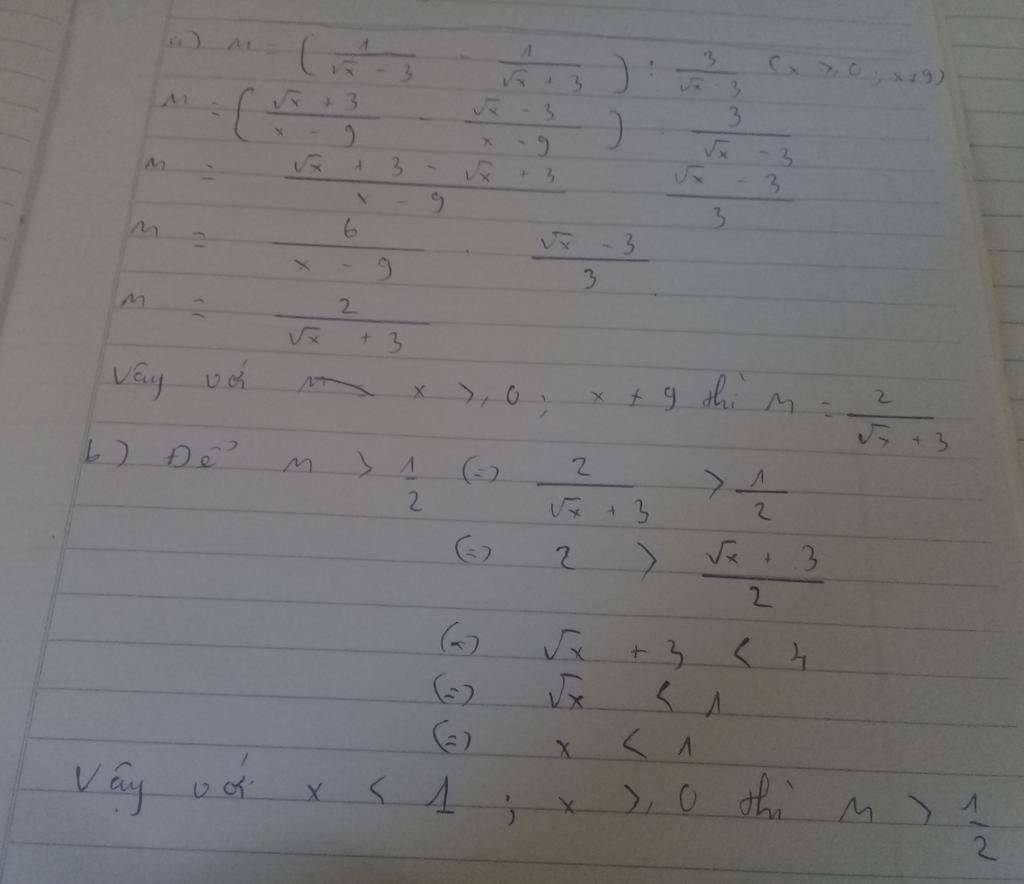 a) M = ( 1/(√x - 3) - 1/(√x + 3) ) : 3/(√x - 3) (x ≥ 0 ; x ≠ 9)
M = ( (√x + 3)/(x - 9) - (√x - 3)/(x - 9) ) : 3/(√x - 3)
M = (√x + 3 - √x + 3)/(x - 9) . (√x - 3)/3
M = 6/(x - 9) . (√x - 3)/3
M = 2/(√x + 3)
Vậy với x ≥ 0 ; x ≠ 9 thì M = 2/(√x + 3)
b) Để M > 1/2 (=) 2/(√x + 3) > 1/2
(=) 2 > (√x + 3)/2
(=) √x + 3 < 4
(=) √x < 1
(=) x < 1
Vậy với x < 1 ; x ≥ 0 thì M > 1/2